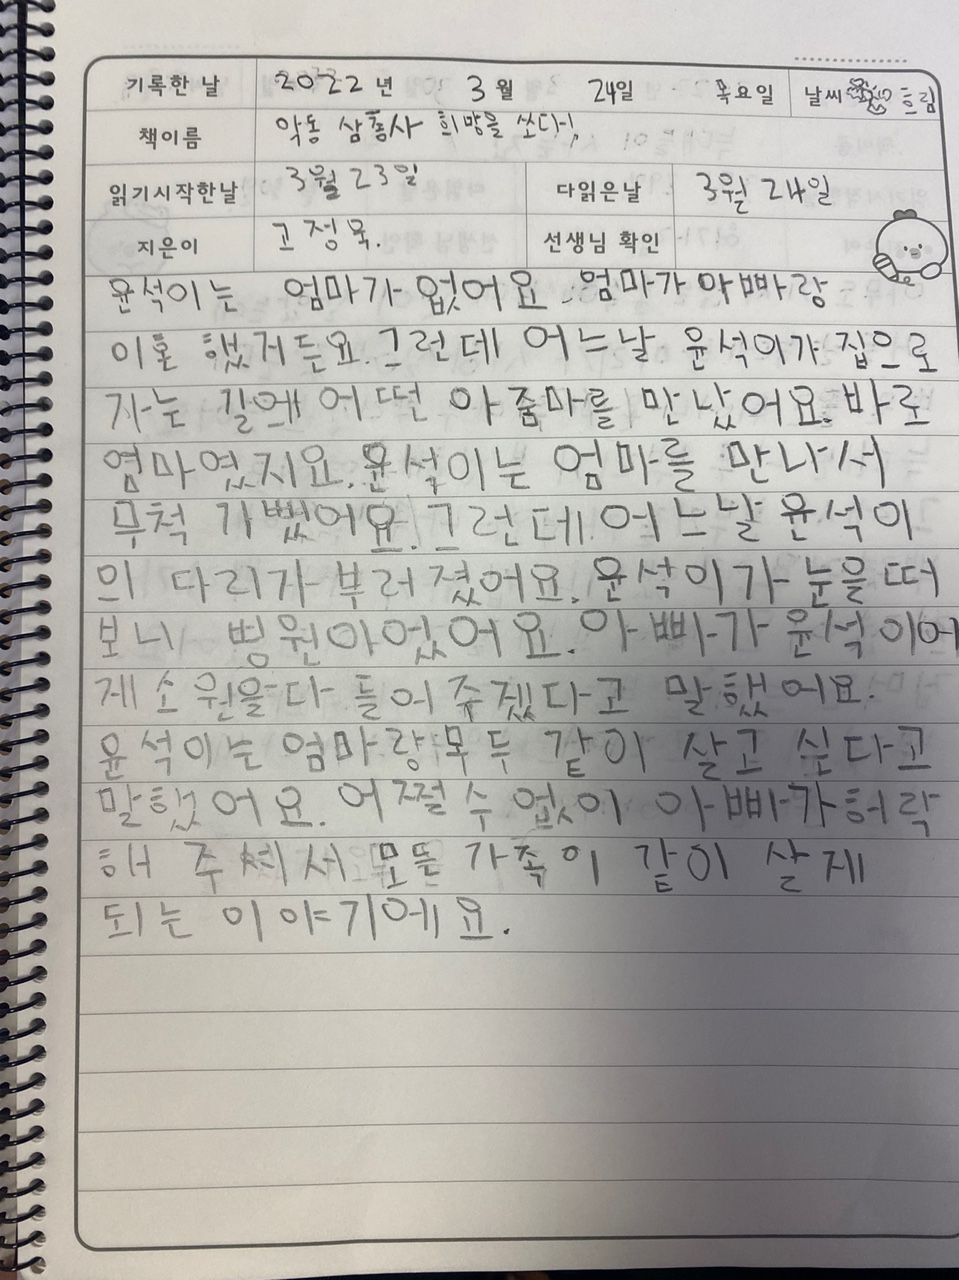 기록한 날 2022년 3월 24일 목요일 날씨 흐림
책이름 악동 삼총사 희망을 쏘다
읽기시작한날 3월 23일 다읽은날 3월 24일
지은이 고정욱. 선생님 확인
윤석이는 엄마가 없어요. 엄마가 아빠랑
이혼 했거든요. 그런데 어느날 윤석이가 집으로
가는 길에 어떤 아줌마를 만났어요. 바로
엄마였지요. 윤석이는 엄마를 만나서
무척 기뻤어요. 그런데 어느날 윤석이
의 다리가 부러졌어요. 윤석이가 눈을 떠
보니 병원이었어요. 아빠가 윤석이에
게 소원을 다 들어주겠다고 말했어요.
윤석이는 엄마랑 모두 같이 살고 싶다고
말했어요. 어쩔 수 없이 아빠가 허락
해 주셔서 모든 가족이 같이 살게
되는 이야기에요.